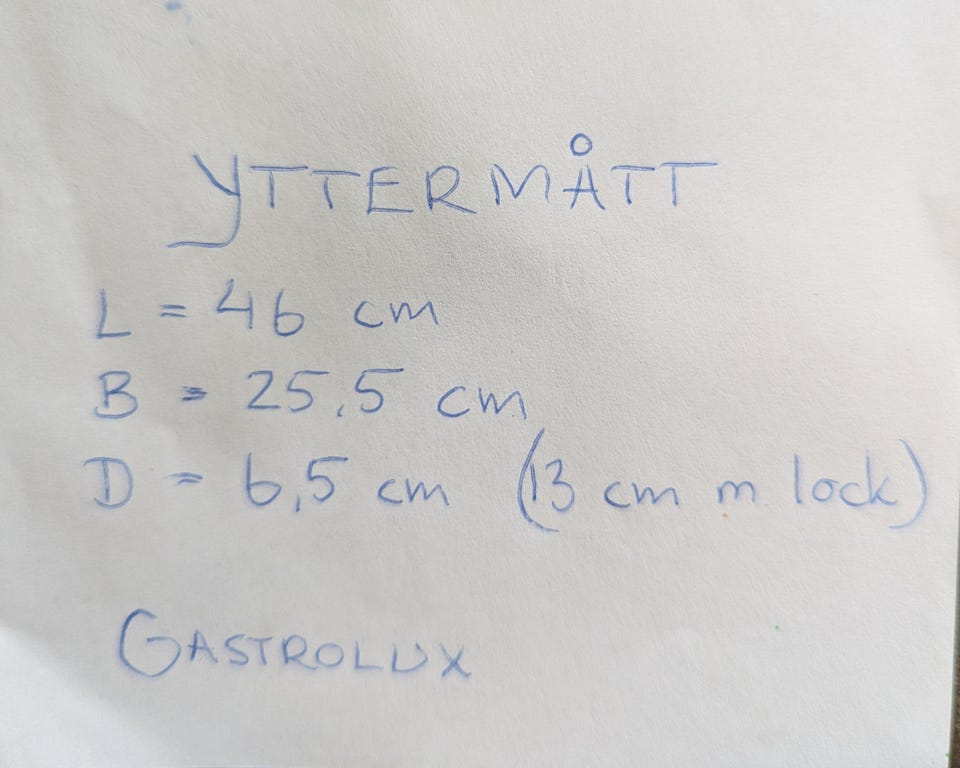 YTTERMÅTT
L = 46 cm
B = 25,5 cm
D = 6,5 cm (13 cm m lock)
GASTROLUX